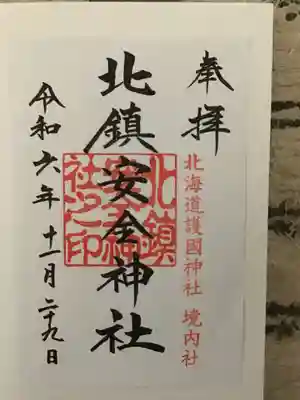 奉拝
北海道護國神社 境内社
北鎮安全神社
北鎮安全神社之印
令和六年 十一月 二十九日